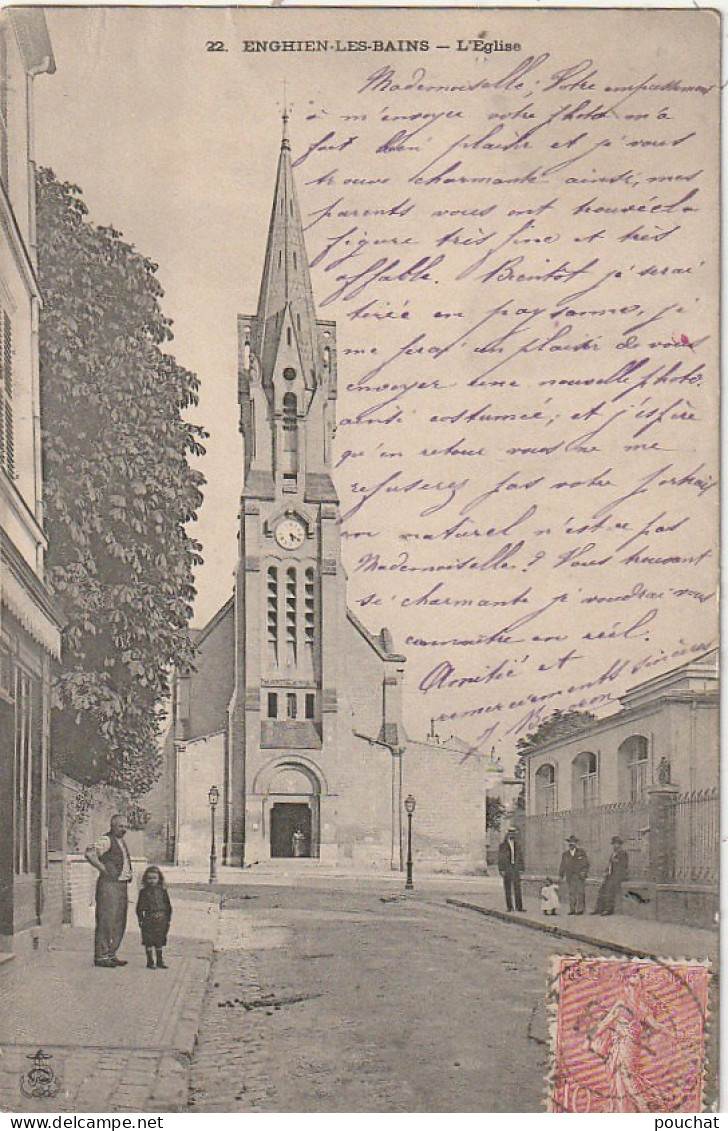 22. ENGHIEN-LES-BAINS — L'Église
Mademoiselle; Votre empressement
à m'envoyer votre photo m'a
fort bien plaisir et je vous
trouve charmante ainsi, mes
parents vous ont trouvée la
figure très fine et très
affable. Bientôt je serai
tirée en paysanne, je
me ferai un plaisir de vous
envoyer une nouvelle photo
ainsi costumée; et j'espère
qu'en retour vous ne me
refuserez pas votre portrait
au naturel n'est ce pas
Mademoiselle? Vous trouvant
si charmante je voudrai vous
connaître en réel.
Amitié et
remerciements sincères
10
pouchat